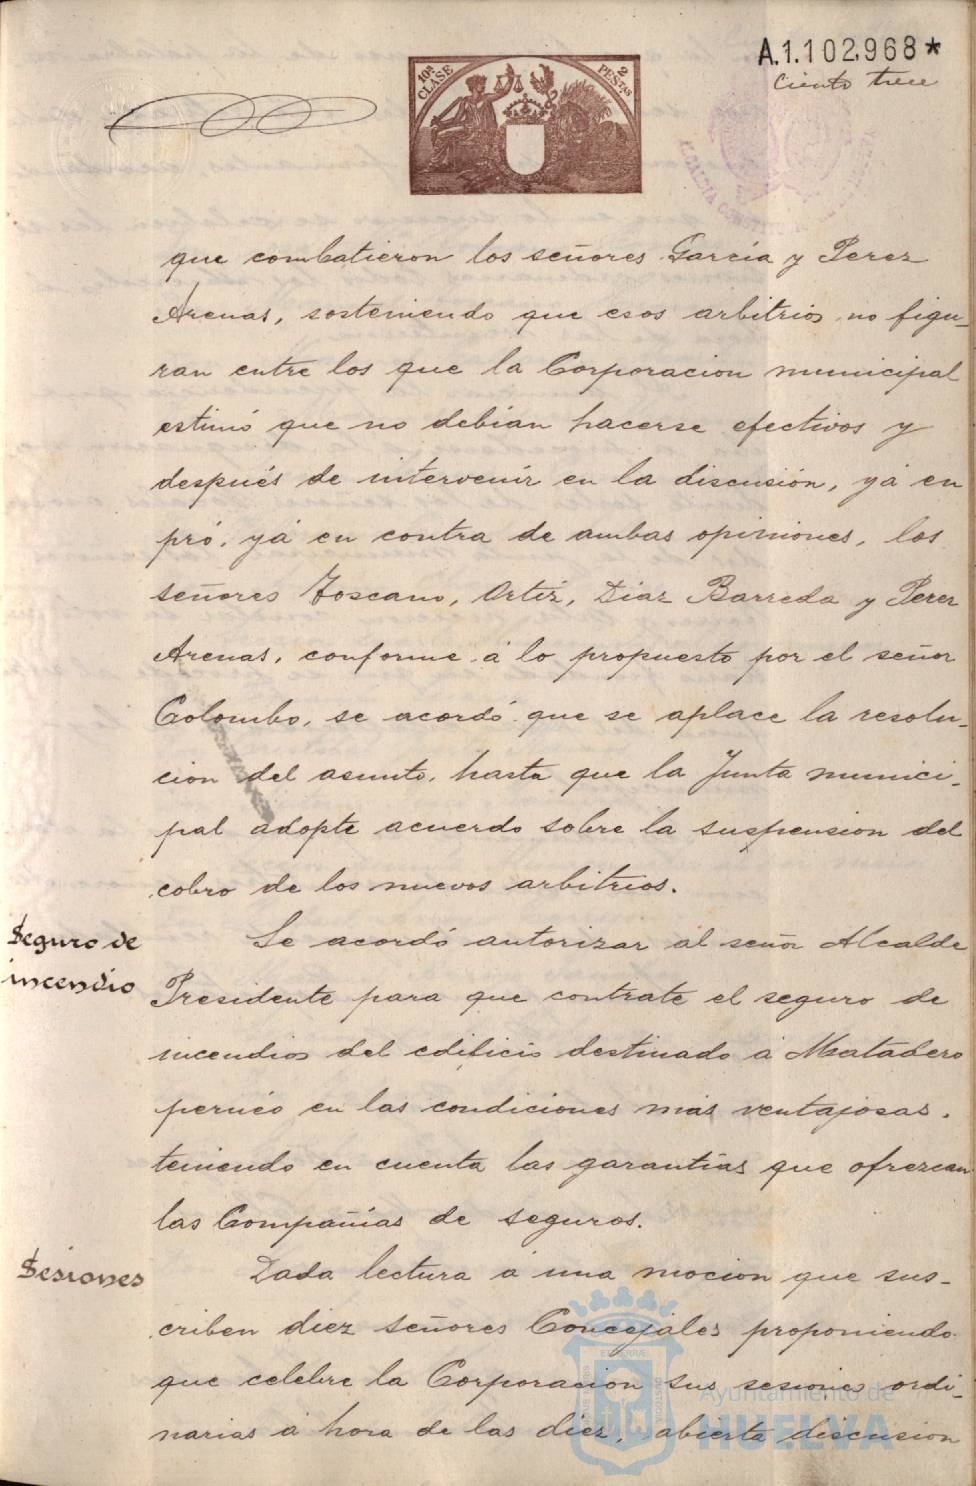 A.1.102.968*
Ciento trece
10ª CLASE
2 PESTAS
que combatieron los señores García y Perez
Arenas, sosteniendo que esos arbitrios no figu-
ran entre los que la Corporacion municipal
estimó que no debían hacerse efectivos y
después de intervenir en la discusión, yá en
pró, yá en contra de ambas opiniones, los
señores Toscano, Ortiz, Diaz Barreda y Perez
Arenas, conforme á lo propuesto por el señor
Colombo, se acordó que se aplace la resolu-
cion del asunto, hasta que la Junta munici-
pal adopte acuerdo sobre la suspension del
cobro de los nuevos arbitrios.
Seguro de
incendio
Se acordó autorizar al señor Alcalde
Presidente para que contrate el seguro de
incendios del edificio destinado á Matadero
perneo en las condiciones más ventajosas,
teniendo en cuenta las garantías que ofrezcan
las Compañías de seguros.
Sesiones
Dada lectura á una mocion que sus-
criben diez señores Concejales proponiendo
que celebre la Corporacion sus sesiones ordi-
narias á hora de las diez, abierta discusion
Ayuntamiento de
HUELVA